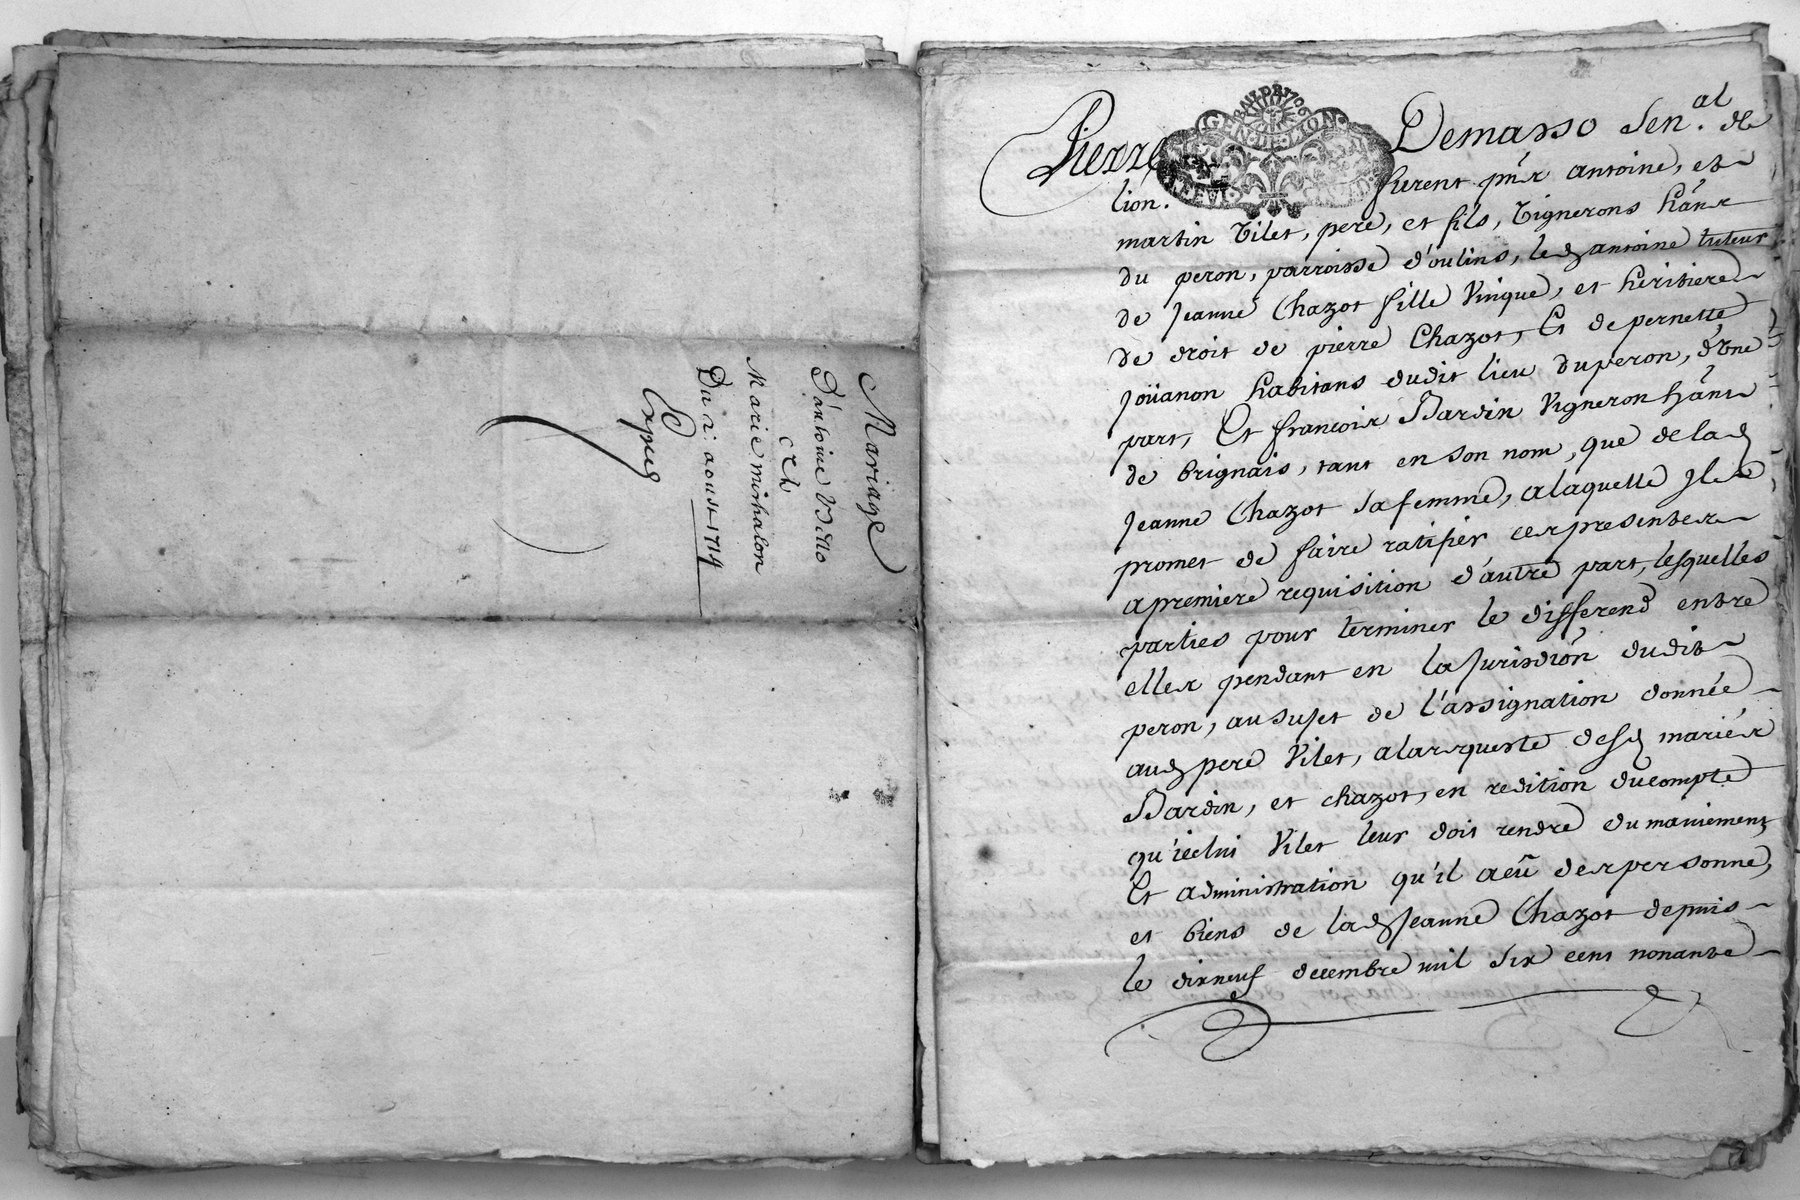 Mariage
D'antoine Vello
Et
Marie michalon
Du 2: aoust 1714
Expéd
BAV DE 1706
GEN DE LION
Pierre Demasso Sen.al de
lion.
furent pnts antoine, et
martin Vilet, pere, et fils, Vignerons hans
du peron, parroisse d'oulins, led antoine tuteur
de Jeanne Chazot fille Vnique, et heritiere
de droit de pierre Chazot, Et de pernette
Joüanon habitans dudit lieu du peron, d'Vne
part, Et francois Bardin Vigneron hant
de brignais, tant en son nom, que de lad
Jeanne Chazot sa femme, a laquelle Il
promet de faire ratifier ces presentes
a premiere requisition d'autre part, lesquelles
parties pour terminer le differend entre
elles pendant en la Jurisdion dudit
peron, au sujet de l'assignation donnée
aud pere Vilet, a la requeste desd mariés
Bardin, et chazot, en redition du compte
qu'iceluy Vilet leur doit rendre du maniement
Et administration qu'il a eû des personne,
et biens de lad Jeanne Chazot depuis
le dixneuf decembre mil six cens nonante